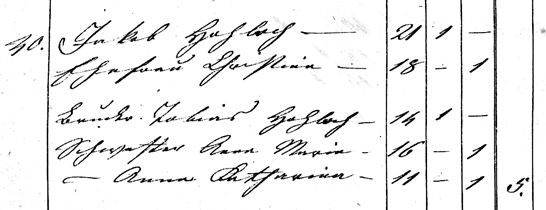 40. Jakob Hohloch — 21 1 —
Ehefrau Christine — 18 — 1
Bruder Tobias Hohloch — 14 1 —
Schwester Anna Maria — 16 — 1
— Anna Katharina — 11 — 1 5.